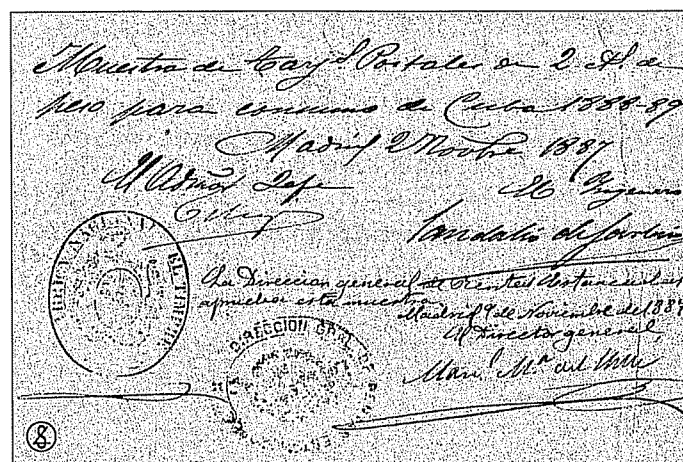 Muestra de Tarj.s Postales de 2 cs. de
peso para consumo de Cuba 1888-89
Madrid 2 Novbre 1887
El Admor Jefe
El Ingeniero
Sandalio de
La Direccion general de Rentas Estancadas
aprueba esta muestra
Madrid 9 de Noviembre de 1887
El Director general,
Man.l M.a del Valle
DIRECCION GRAL. DE
8